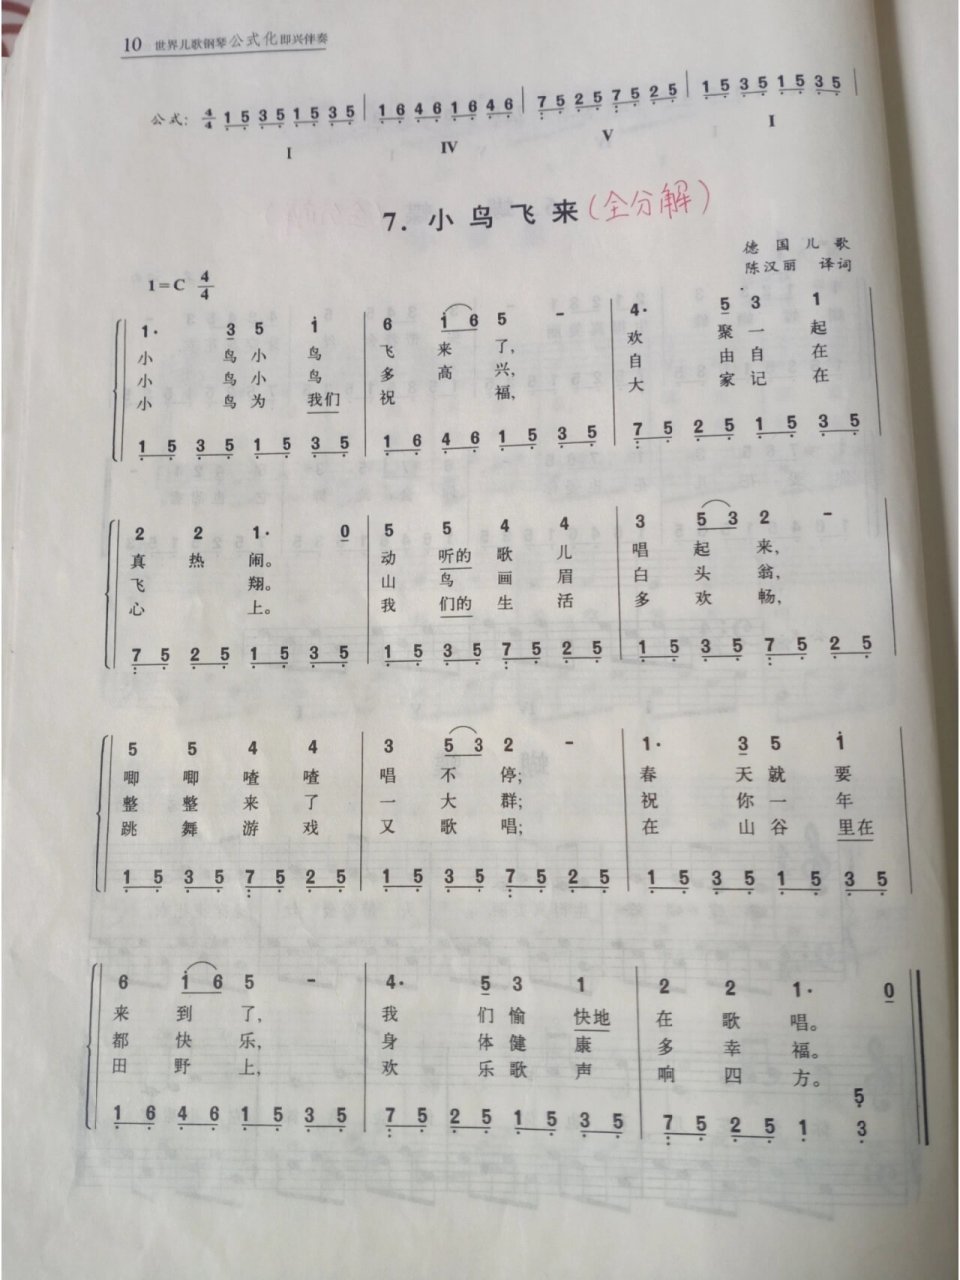 10 世界儿歌钢琴公式化即兴伴奏
公式: 4/4 1 5 3 5 1 5 3 5 | 1 6 4 6 1 6 4 6 | 7 5 2 5 7 5 2 5 | 1 5 3 5 1 5 3 5 |
I IV V I
7. 小鸟飞来(全分解)
德国儿歌
陈汉丽 译词
1=C 4/4
1· 3 5 i | 6 i 6 5 - | 4· 5 3 1 |
小 鸟 小 鸟 飞 来 了, 欢 聚 一 起
小 鸟 小 鸟 多 高 兴, 自 由 自 在
小 鸟 为 我们 祝 福, 大 家 记 在
1 5 3 5 1 5 3 5 | 1 6 4 6 1 5 3 5 | 7 5 2 5 1 5 3 5 |
2 2 1· 0 | 5 5 4 4 | 3 5 3 2 - |
真 热 闹。 动 听的 歌 儿 唱 起 来,
飞 翔。 山 鸟 画 眉 白 头 翁,
心 上。 我 们的 生 活 多 欢 畅,
7 5 2 5 1 5 3 5 | 1 5 3 5 7 5 2 5 | 1 5 3 5 7 5 2 5 |
5 5 4 4 | 3 5 3 2 - | 1· 3 5 i |
唧 唧 喳 喳 唱 不 停; 春 天 就 要
整 整 来 了 一 大 群; 祝 你 一 年
跳 舞 游 戏 又 歌 唱; 在 山 谷 里在
1 5 3 5 7 5 2 5 | 1 5 3 5 7 5 2 5 | 1 5 3 5 1 5 3 5 |
6 i 6 5 - | 4· 5 3 1 | 2 2 1· 0
来 到 了, 我 们 愉 快地 在 歌 唱。
都 快 乐, 身 体 健 康 多 幸 福。
田 野 上, 欢 乐 歌 声 响 四 方。
5
1 6 4 6 1 5 3 5 | 7 5 2 5 1 5 3 5 | 7 5 2 5 1 3